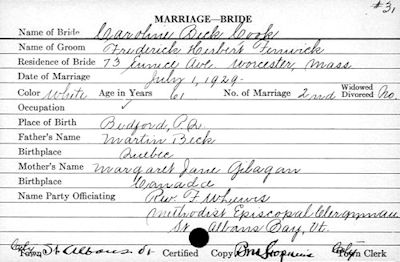 #31
MARRIAGE—BRIDE
Name of Bride Caroline Beck Cook
Name of Groom Frederick Herbert Fenwick
Residence of Bride 73 Eunice Ave. Worcester, Mass
Date of Marriage July 1, 1929.
Color White Age in Years 61 No. of Marriage 2nd Widowed Divorced No.
Occupation ✓
Place of Birth Bedford, P.Q.
Father's Name Martin Beck
Birthplace Quebec
Mother's Name Margaret Jane
Birthplace Canada
Name Party Officiating Rev. F
Methodist Episcopal Clergyman
St. Albans Bay, Vt.
City Town St Albans Vt Certified Copy City Town Clerk